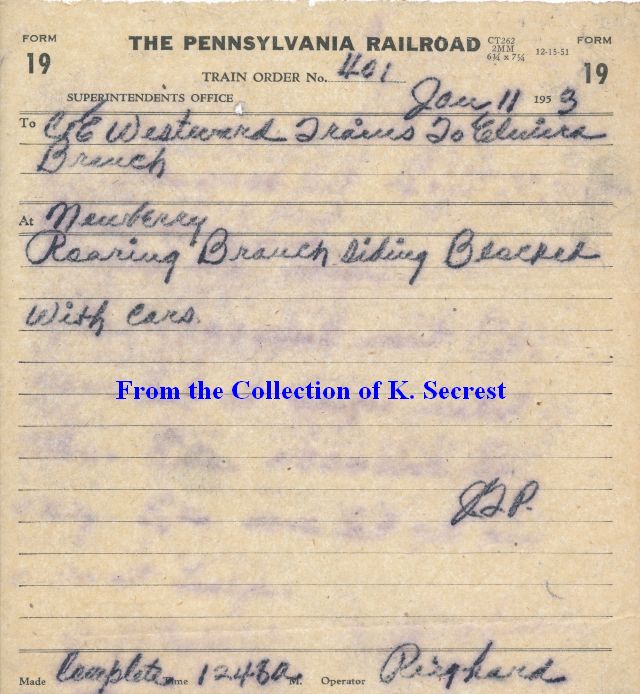 FORM 19
THE PENNSYLVANIA RAILROAD
CT262
2MM
6¾ x 7¼
12-15-51
FORM 19
TRAIN ORDER No. 401
SUPERINTENDENTS OFFICE Jan 11 1953
To C&E Westward Trains To Elmira
Branch
At Newberry
Roaring Branch siding Blocked
With cars.
From the Collection of K. Secrest
Made Complete Time 1248 A M. Operator